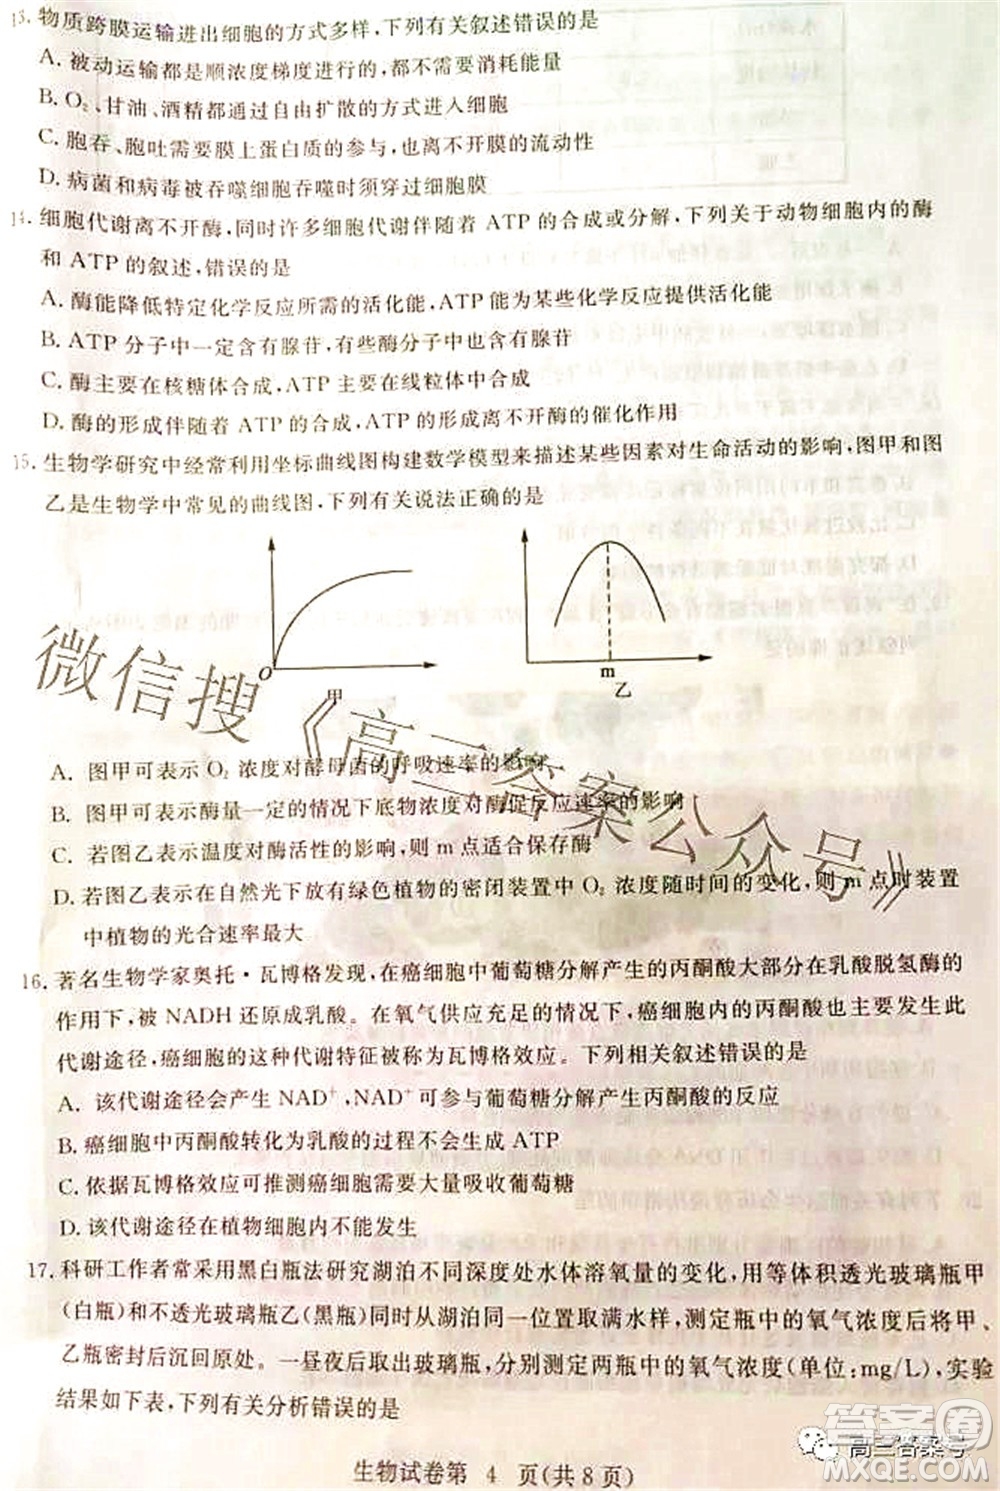 13. 物质跨膜运输进出细胞的方式多样,下列有关叙述错误的是
A. 被动运输都是顺浓度梯度进行的,都不需要消耗能量
B. O₂、甘油、酒精都通过自由扩散的方式进入细胞
C. 胞吞、胞吐需要膜上蛋白质的参与,也离不开膜的流动性
D. 病菌和病毒被吞噬细胞吞噬时须穿过细胞膜
14. 细胞代谢离不开酶,同时许多细胞代谢伴随着 ATP 的合成或分解,下列关于动物细胞内的酶
和 ATP 的叙述,错误的是
A. 酶能降低特定化学反应所需的活化能,ATP 能为某些化学反应提供活化能
B. ATP 分子中一定含有腺苷,有些酶分子中也含有腺苷
C. 酶主要在核糖体合成,ATP 主要在线粒体中合成
D. 酶的形成伴随着 ATP 的合成,ATP 的形成离不开酶的催化作用
15. 生物学研究中经常利用坐标曲线图构建数学模型来描述某些因素对生命活动的影响,图甲和图
乙是生物学中常见的曲线图,下列有关说法正确的是
O
甲
m
乙
微信搜《高三答案公众号》
A. 图甲可表示 O₂ 浓度对酵母菌的呼吸速率的影响
B. 图甲可表示酶量一定的情况下底物浓度对酶促反应速率的影响
C. 若图乙表示温度对酶活性的影响,则 m 点适合保存酶
D. 若图乙表示在自然光下放有绿色植物的密闭装置中 O₂ 浓度随时间的变化,则 m 点时装置
中植物的光合速率最大
16. 著名生物学家奥托·瓦博格发现,在癌细胞中葡萄糖分解产生的丙酮酸大部分在乳酸脱氢酶的
作用下,被 NADH 还原成乳酸。在氧气供应充足的情况下,癌细胞中的丙酮酸也发生此
代谢途径,癌细胞的这种代谢特征被称为瓦博格效应。下列相关叙述错误的是
A. 该代谢途径会产生 NAD⁺,NAD⁺可参与葡萄糖生成丙酮酸的反应
B. 癌细胞中丙酮酸转化为乳酸的过程不会生成 ATP
C. 依据瓦博格效应可推测癌细胞需要大量吸收葡萄糖
D. 该代谢途径在植物细胞内不能发生
17. 科研工作者常采用黑白瓶法研究湖泊不同深度处水体溶氧量的变化,用等体积透光玻璃瓶甲
(白瓶)和不透光玻璃瓶乙(黑瓶)同时从湖泊同一位置取满水样,测定瓶中的氧气浓度后将甲、
乙瓶密封后沉回原处。一昼夜后取出玻璃瓶,分别测定两瓶中的氧气浓度(单位:mg/L),实验
结果如下表,下列有关分析错误的是
生物试卷第 4 页(共 8 页)
高三答案号
答案圈
MXQE.COM